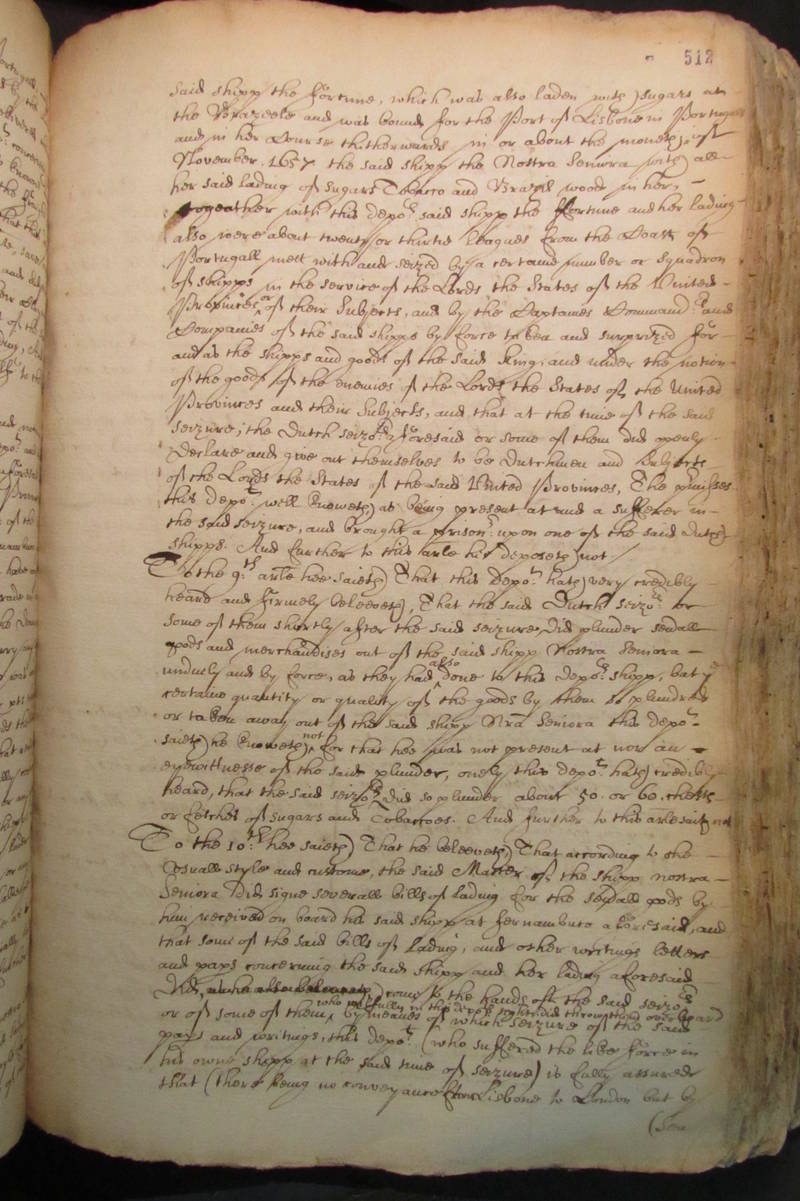 512
said shipp the Fortune, which was also laden with sugars at
the Brazeele and was bound for the Port of Lisbone in Portugall
and in her Course thitherwards in or about the moneth of
November. 1657 the said shipp the Nostra Seniora with all
her said lading of sugars Tobacco and Brazil wood in her,
togeather with this depo:t said shipp the Fortune and her lading
also were about twenty or thirtie leagues from the Coast of
Portugall mett with and seized by a certaine number or squadron
of shipps in the service of the Lords the States of the United
Provinces or of their Subjects, and by the Captaines Command:rs and
Companies of the said shipps by force taken and surprized for
and as the shipps and goods of the said King, and under the notion
of the goods of the enemies of the Lords the States of the United
Provinces and their Subjects, and that at the time of the said
seizure, the Dutch seizo:rs aforesaid or some of them did openly
declare and give out themselves to be Dutchmen and Subjects
of the Lords the States of the said United Provinces, The premisses
this depo:t well knoweth as being present at and a sufferer in
the said seizure, and brought a prison:r upon one of the said Dutch
shipps. And further to this arle hee deposeth not/
To the 9:th arle hee saieth That this Depo:t hath very credibly
heard and firmely beleeveth, That the said Dutch seizo:rs or
some of them shortly after the said seizure did plunder severall
goods and merchandises out of the said shipp Nostra Seniora
unduely and by force, as they had also done to this depo:ts shipp, but ye
certaine quantity or quality of the goods by them so plundred
or taken away out of the said shipp Nra Seniora this depo:t
saieth he knoweth not, for that hee was not present at nor an
eyewittnesse of the said plunder, onely this depo:t hath credibly
heard, that the said seizo:rs did so plunder about 50. or 60. chests
or fetches of sugars and Tobaccoes. And further to this arle saith not
To the 10:th hee saieth That he beleeveth That according to the
Usuall style and custome, the said Master of the shipp nostra
Seniora did signe severall bills of lading for the severall goods by
him received on board his said shipp at fernambuco aforesaid, and
that some of the said bills of lading, and other writings letters
and paps concerning the said shipp and her lading aforesaid
did, as he also beleeveth come to the hands of the said seizo:rs
or of some of them, who wilfully in this depo:ts sight did throw them over board
by meanes of which seizure of the said
paps and writings, this depo:t (who suffered the like force in
his owne shipp at the said time of seizure) is fully assured
that (there being no conveyance from Lisbone to London but by
(Sea